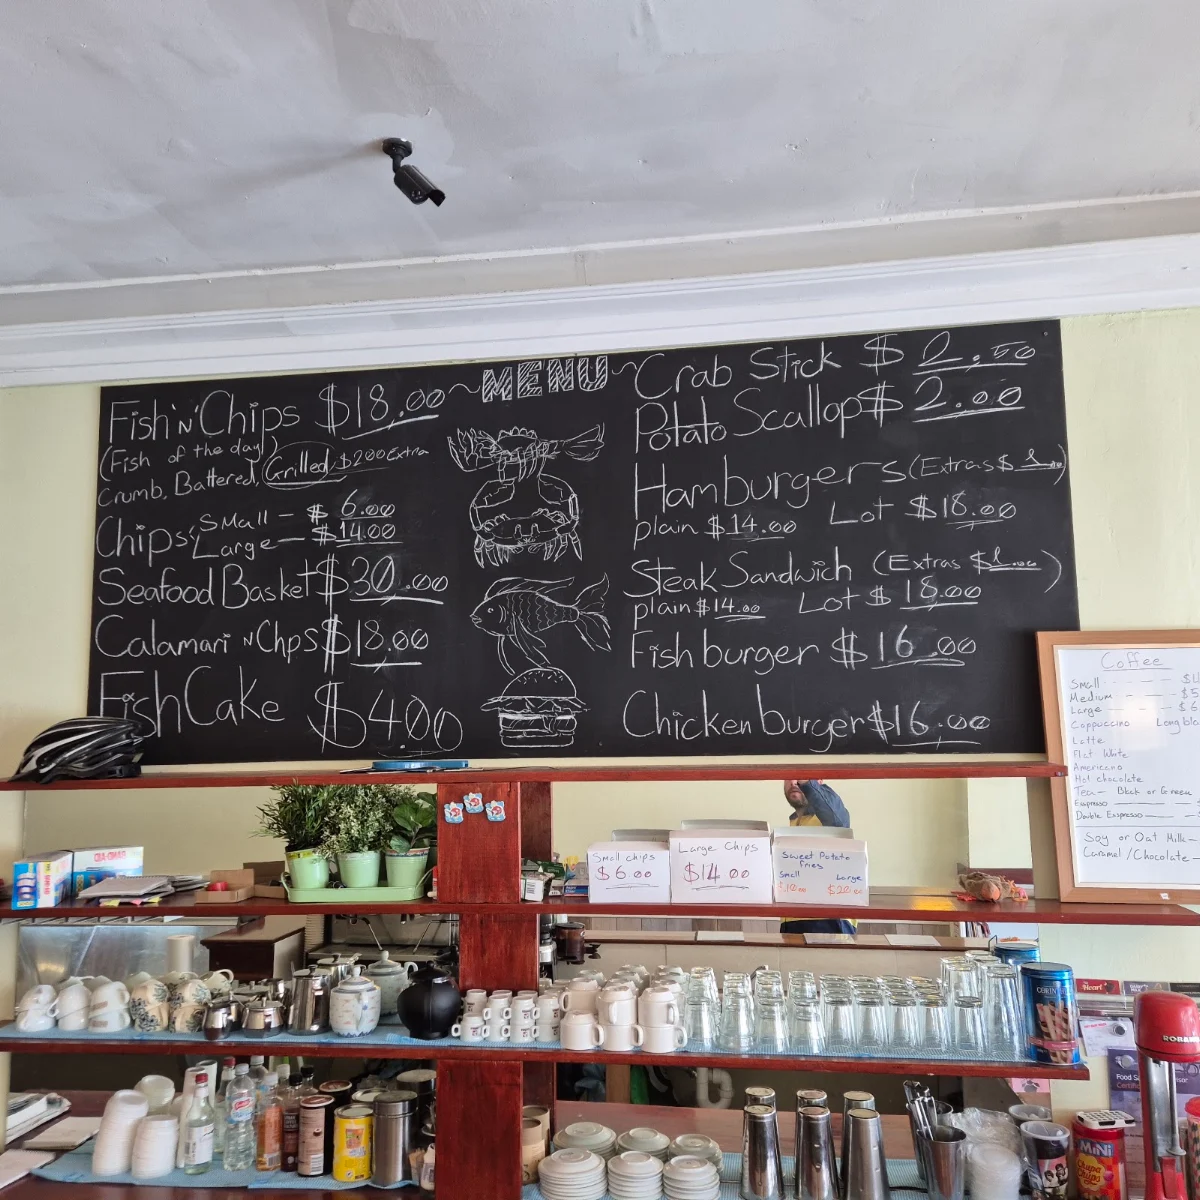 ~ MENU ~
Fish 'n' Chips $18.00
(Fish of the day)
Crumb, Battered, Grilled $2.00 Extra
Chips: Small - $6.00
Large - $14.00
Seafood Basket $30.00
Calamari 'N Chps $18.00
Fish Cake $4.00
Crab Stick $2.50
Potato Scallop $2.00
Hamburgers (Extras $
plain $14.00 Lot $18.00
Steak Sandwich (Extras $
plain $14.00 Lot $18.00
Fish burger $16.00
Chicken burger $16.00
Coffee
Small
Medium
Large
Cappuccino Long bla
Latte
Flat White
Americano
Hot chocolate
Tea - Black or Green
Esspresso
Double Esspresso
Soy or Oat Milk -
Caramel / Chocolate -
Small chips
$6 00
Large Chips
$14 00
Sweet Potato
fries
Small Large
$10.00 $20.00
Mini